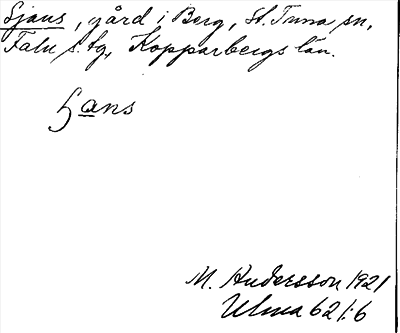 Ljans, gård i Berg, St. Tuna sn,
Falu s. tg, Kopparbergs län.
ans
M. Andersson 1921
Ulma 62 1:6